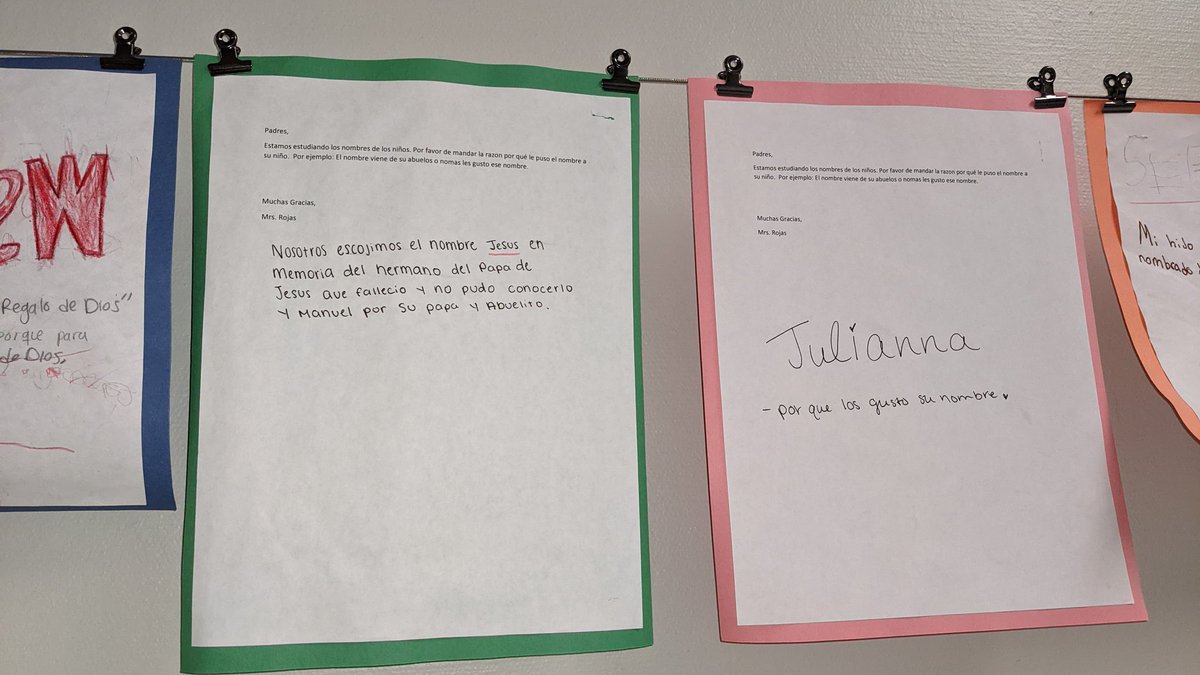 W
Regalo de Dios"
porque para
de Dios.
Padres,
Estamos estudiando los nombres de los niños. Por favor de mandar la razon por qué le puso el nombre a
su niño. Por ejemplo: El nombre viene de su abuelos o nomas les gusto ese nombre.
Muchas Gracias,
Mrs. Rojas
Nosotros escojimos el nombre Jesus en
memoria del hermano del Papa de
Jesus que fallecio y no pudo conocerlo
y Manuel por su papa y Abuelito.
Padres,
Estamos estudiando los nombres de los niños. Por favor de mandar la razon por qué le puso el nombre a
su niño. Por ejemplo: El nombre viene de su abuelos o nomas les gusto ese nombre.
Muchas Gracias,
Mrs. Rojas
Julianna
- por que los gusto su nombre
Mi hijo
nombrado